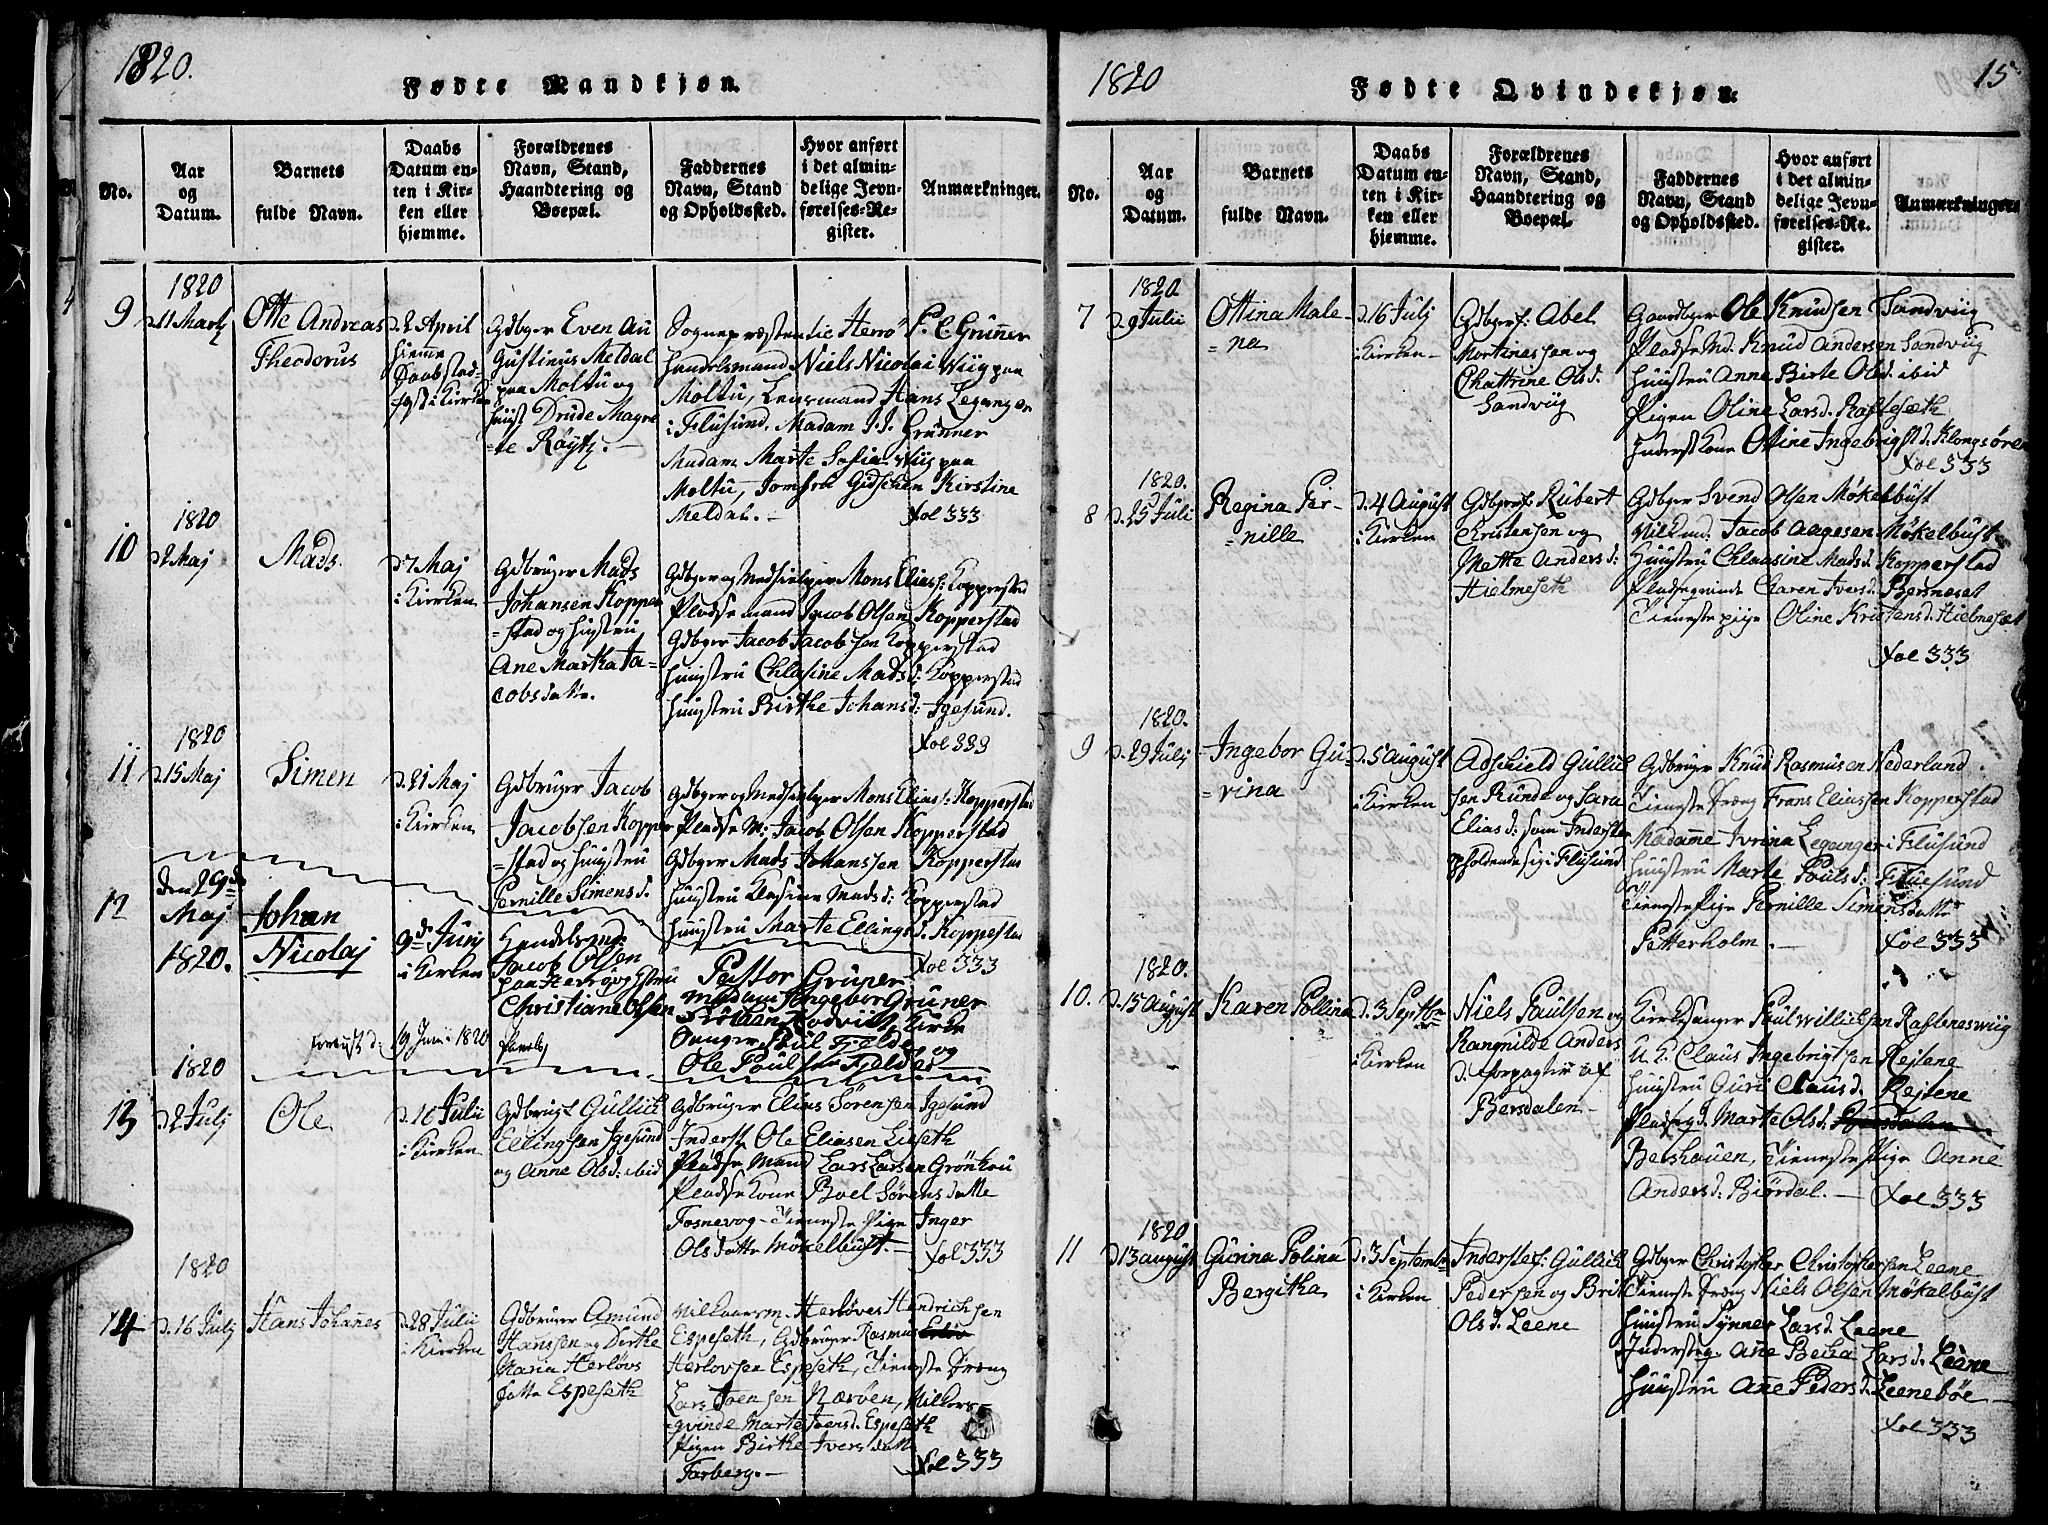 1820.
Fødte Mandkjøn.
No.
Aar
og
Datum.
Barnets
fulde Navn.
Daabs
Datum en-
ten i Kir-
ken eller
hjemme.
Forældrenes
Navn, Stand,
Haandtering og
Boepæl.
Faddernes
Navn, Stand
og Opholdssted.
Hvor anført
i det almin-
delige Jevn-
førelses-Re-
gister.
Anmærkninger.
9
1820
d. 11 Marti
Otte Andreas
Theodorus
d. 2 April
hiemme
Daabsted-
fæst i Kirken
Gdbger Even Au
gustinus Meldal
paa Moltu og
Hust Drude Magre
-te Røytz.
Sognepræsten Herr F. C Gruner
Handelsmand Niels Nicolai Wiig paa
Moltu, Lensmand Hans Leganger
i Flusund, Madam J. J. Gruner
Madam Marte Sofia Wiig paa
Moltu, Jomfru Gidschen Kirstine
Meldal.
Fol 333
10
1820
d. 2 Maj
Mads.
d. 7 Maj
i Kirken
Gdbruger Mads
Johansen Kopper
=stad og Hustru
Ane Marta Ja-
cobsdatter.
Gdbger og Medhielper Mons Elias: Kopperstad
Pladsemand Jacob Olsen Kopperstad
Gdbger Jacob Jacobsen Kopperstad
Huustru Chlasine Madsd: Kopperstad
Huustru Birthe Johansd: Igesund.
Fol 333
11
1820
d. 15 Maj
Simen
d. 21 Maj
i Kirken
Gdbruger Jacob
Jacobsen Kopper
=stad og Huustru
Pernille Simensd.
Gdbger og Medhielper Mons Elias: Kopperstad
Pladse M: Jacob Olsen Kopperstad
Gdbger Mads Johanssen Kopperstad
Huustru Klasine Madsd: Kopperstad
Huustru Marte Ellingsd. Kopperstad
Fol 333
12
den 29de
Maj
1820.
Johan
Nicolaj
9d Junj
i Kirken
Handelsmd:
Jacob Olsen
paa Herøe og Hustru
Christiane Olsen
Pastor Gruner
Madam Ingebor Gruner
Kirke
Sanger Poul Fjelde og
Ole Poulsen Fjelde
d. 19 Juni 1820
13
1820
d. 2 Julj
Ole
d. 16 Julii
i Kirken
Gdbrugf Gullich
Ellingsen Igesund
og Anne Olsd: ibid
Gdbruger Elias Sørensen Igesund
Inderst Ole Eliasen Lieseth
Pladse Mand Lars Larsen Grönhou
Pladsekone Boel Sørensdatte
Fosnevog - Tieneste Pige Inger
Olsdatte Mökelbust.
Fol 333
14
1820
d. 16 Julj
Hans Johanes
d. 28 Julii
i Kirken
Gdbruger Amund
Hanssen og Birthe
Maria Herløvs
datte Espeseth
Vilkaarsm. Herløves Hendrichsen
Espeseth, Gdbruger Rasmus
Herlovsen Espeseth, Tieneste Dræng
Lars Joensen Nærøen, Vilkors-
=qvinde Marte Iversd. Espeseth
Pigen Birthe Iversdatte
Tarberg.
Fol 333
1820
Fødte Qvindekjøn.
15
No.
Aar
og
Datum.
Barnets
fulde Navn.
Daabs
Datum en-
ten i Kir-
ken eller
hjemme.
Forældrenes
Navn, Stand,
Haandtering og
Boepæl.
Faddernes
Navn, Stand
og Opholdssted.
Hvor anført
i det almin-
delige Jevn-
førelses-Re-
gister.
Anmærkninger.
7
1820
d. 9 Julii
Ottina Male-
=na
d. 16 Julj
i Kirken
Gdbgerf. Abel
Mortinessen og
Chattrine Olsd.
Sandviig
Gaardbger Ole Knudsen Sandviig
PladseMd. Knud Andersen Sandviig
Huustru Anne Birte Olsd. ibid
Pigen Oline Larsd. Raftesæth
Inderstkone Otine Ingebrigtsd. Klongsören
Fol 333
8
1820.
d. 25 Juli
Regina Per-
=nille
d. 4 August
i Kirken
Gdbgerf. Rubert
Christensen og
Mette Andersd:
Hielmeseth
Gdbger Svend Olsen Møkelbust
Vilkmd. Jacob Aagesen Møkelbust
Huustru Chlausine Madsd. Kopperstad
Pladseqvinde Caren Iversd. Bersneset
Tienestepige Oline Kristensd. Hielmeset
Fol 333
9
1820.
d. 29 Julj
Ingebor Gu-
=rina
d. 5 August
i Kirken
Adschield Gullich
sen Runde og Sara
Eliasd: som Inderster
opholdende sig i Flusund
Gdbruger Knud Rasmusen Nederland
Tieneste Dræng Frans Eliassen Kopperstad
Madame Ivrina Leganger i Flusund
Huustru Marte Poulsd: Flusund
Tieneste Pige Pernille Simensdatter
Petterholm.
Fol 333
10.
1820.
d. 15 August
Karen Pollina
d. 3 Septbr
i Kirken
Niels Paulsen og
Rangnilde Anders
d. Forpagter af
Bersdalen
Kirkesanger Poul Willichsen Raftneswiig
U. K. Claus Ingebrigtsen Rejtene
Huustru Guri Clausd. Rejtene
Pladseqd. Marte Olsd. Bersdalen
Belshauen, Tieneste Pige Anne
Andersd: Biørdal.
Fol 333
11
1820
d. 13 august
Gurina Polina
Bergitha
d. 3 Septembr
i Kirken
Inderstef: Gullich
Pedersen og Brit
Olsd. Leene
Gdbger Christopher Christophersen Leene
Tieneste Dræng Niels Olsen Møkelbust
Huustru Synner Larsd. Leene
Inderstq. Ane Beita Larsd. Leene
Huustru Ane Pedersd. Leenebøe
Fol 333